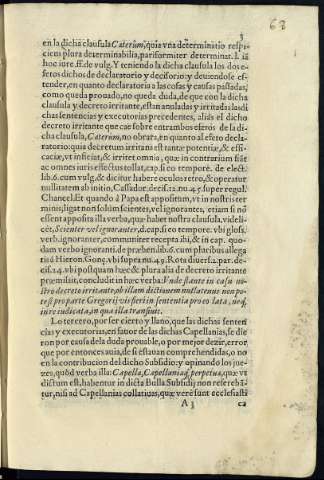 3
63
en la dicha clausula Cæterùm, quia vna determinatio respi-
ciens plura determinabilia, pariformiter determinat. l. iã
hoc iure. ff. de vulg. Y teniendo la dicha clausula los dos e-
fetos dichos de declaratorio y decisorio: y deuiendose ef-
tender, en quanto declaratorio a las cosas y causas passadas,
como queda prouado, no queda duda, de que con la dicha
clausula y decreto irritante, estan anuladas y irritadas las di
chas sentencias y executorias precedentes, aliàs el dicho
decreto irritante que cae sobre entrambos efetos de la di-
cha clausula, Cæterùm, no obrara, en quanto al efeto decla-
ratorio: quia decretum irritans est tantæ potentiæ, & effi-
caciæ, vt inficiat, & irritet omnia, quæ in contrarium fiũt
ac omnes iuris effectus tollat, cap. si eo tempore. de elect.
lib. 6. cum vulg. & dicitur habere oculos retro, & operatur
nullitatem ab initio, Cassador. decis. 12. nu. 4. super regul.
Chancel. Et quando à Papa est appositum, vt in nostris ter-
minis, ligat non solùm scientes, vel ignorantes, etiam si nõ
essent apposita illa verba, quæ habet nostra clausula, videli-
cèt, Scienter vel ignoranter, d. cap. si eo tempore. vbi gloss.
verb. ignoranter, communiter recepta ibi, & in cap. quo-
dam verb. ignorant. de præben. lib. 6. cum pluribus allega-
tis à Hieron. Gonç. vbi supra nu. 49. Rota diuers. 2. par. de-
cis. 24. vbi postquam hæc & plura alia de decreto irritante
præmisisset, concludit in hæc verba: Vnde stante in casu no-
stro decreto irritante, ob illam dictionem nullatenus non po-
test pro parte Gregorij vis fieri in sententia pro eo lata, neq;
iure iudicata, in qua illa transiuit.
Lo tercero, por ser cierto y llano, que las dichas senten-
cias y executorias, en fauor de las dichas Capellanias, se die
ron por causa de la duda prouable, o por mejor dezir, error,
que por entonces auia, de si estauan comprehendidas, o no
en la contribucion del dicho Subsidio: y opinando los jue-
zes, quòd verba illa: Capella, Capellaniaq; perpetua, quæ vt
dictum est, habentur in dicta Bulla Subsidij non referebã-
tur, nisi ad Capellanias collatiuas, quæ verè sunt ecclesiasti
A 3
ca